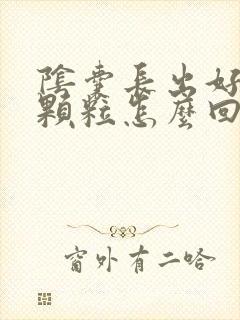 陰囊長出好
顆粒怎麼回
窗外有二哈